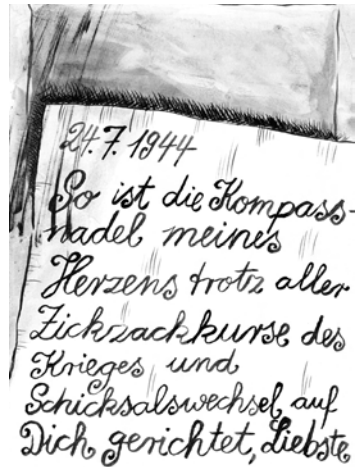 24.7.1944
So ist die Kompass-
nadel meines
Herzens trotz aller
Zickzackkurse des
Krieges und
Schicksalswechsel auf
Dich gerichtet, Liebste